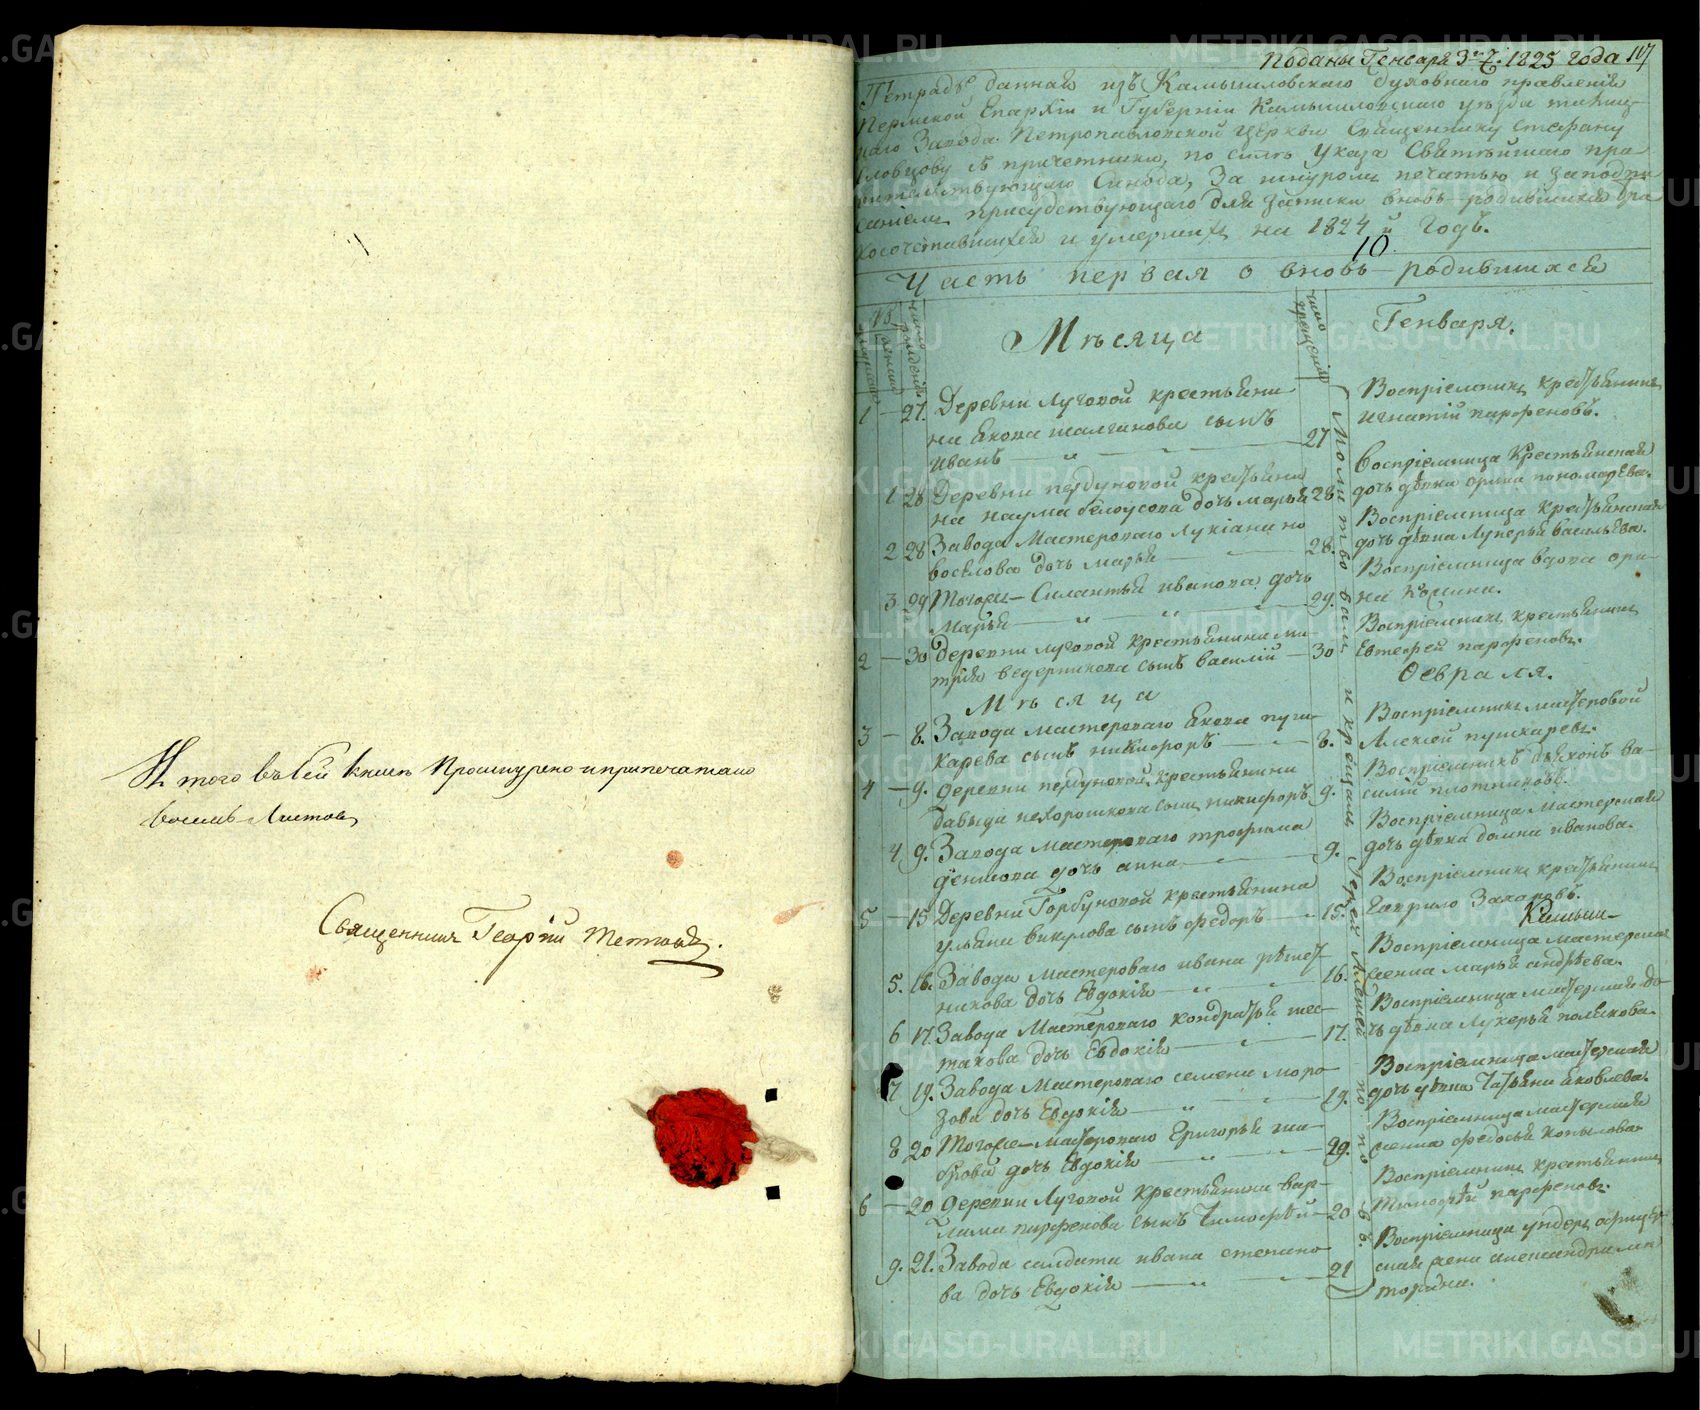 Итого въ сей книгѣ прошнурено и припечатано
восемь листовъ
Священникъ Георгій
Поданы Генваря 3го 7. 1825 года 117
Тетрадь данная изъ Камышловскаго духовнаго правленія
Пермской Епархіи и Губерніи Камышловскаго уѣзда
Завода Петропавловской Церкви Священнику Стефану
ловцову съ причетники, по силѣ Указа Святѣйшаго пра-
вительствующаго Синода, за шнуромъ печатью и заподпи-
саніемъ присудствующаго для записки вновь родившихся бра
косочетавшихся и умершихъ на 1824й Годъ.
10.
Часть первая о вновь родившихся
число рожденія
число крещенія
Мѣсяца
Генваря.
1 — 27. Деревни Луговой крестьяни
на Якова сынъ
Иванъ — 27
Воспріемникъ крестьянинъ
Игнатій парфеновъ.
1 28 Деревни горбуновой крестьяни
на наума белоусова дочь Марья 28
Воспріемница крестьянская
дочь дѣвка пономарева.
2 28 Завода Мастероваго Лукіана но
воселова дочь марья — 28.
Воспріемница крестьянская
дочь дѣвка Лукерья васильева.
3 29 Тогоже Силантья иванова дочь
Марья — 29.
Воспріемница вдова ори-
на
2 — 30 деревни луговой крестьянина ми-
трія ведерникова сынъ василій — 30
Воспріемникъ крестьянинъ
Евтефей парфеновъ.
Мѣсяца
Февраля.
3 — 8. Завода мастероваго Якова пуш-
карева сынъ никифоръ — 8.
Воспріемникъ мастеровой
Алексей пушкаревъ.
4 — 9. деревни горбуновой крестьянина
давыда нехорошкова сынъ никифоръ 9.
Воспріемникъ дьяконъ ва-
силій плотниковъ.
4 9. Завода мастероваго трофима
денисова дочь анна — 9.
Воспріемница мастерская
дочь дѣвка домна иванова.
5 — 15 Деревни Горбуновой крестьянина
ульяна викулова сынъ федоръ — 15.
Воспріемникъ крестьянинъ
Гаврило Захаровъ.
Камыш-
5. 16. Завода мастероваго ивана рѣшет
никова дочь Евдокія — 16.
Воспріемница мастерская
женка марья андрѣева.
6 17. Завода Мастероваго кондратья шес-
такова дочь Евдокія — 17.
Воспріемница мастерская до-
чь дѣвка Лукерья полякова.
7 19. Завода Мастероваго семена моро-
зова дочь Евдокія — 19.
Воспріемница мастерская
дочь дѣвка Татьяна яковлева.
8 20 Тогоже мастероваго Григорья
дочь Евдокія — 20.
Воспріемница мастерская
женка федосья копылова
6 — 20 деревни Луговой крестьянина вар-
лама парфенова сынъ Тимофѣй — 20
Воспріемникъ крестьянинъ
Тимофѣй парфеновъ.
9. 21. Завода салдата ивана степано-
ва дочь Евдокія — 21
Воспріемница ундеръ офицер-
ская жена александра
Молитвовалъ и крещалъ Іерей